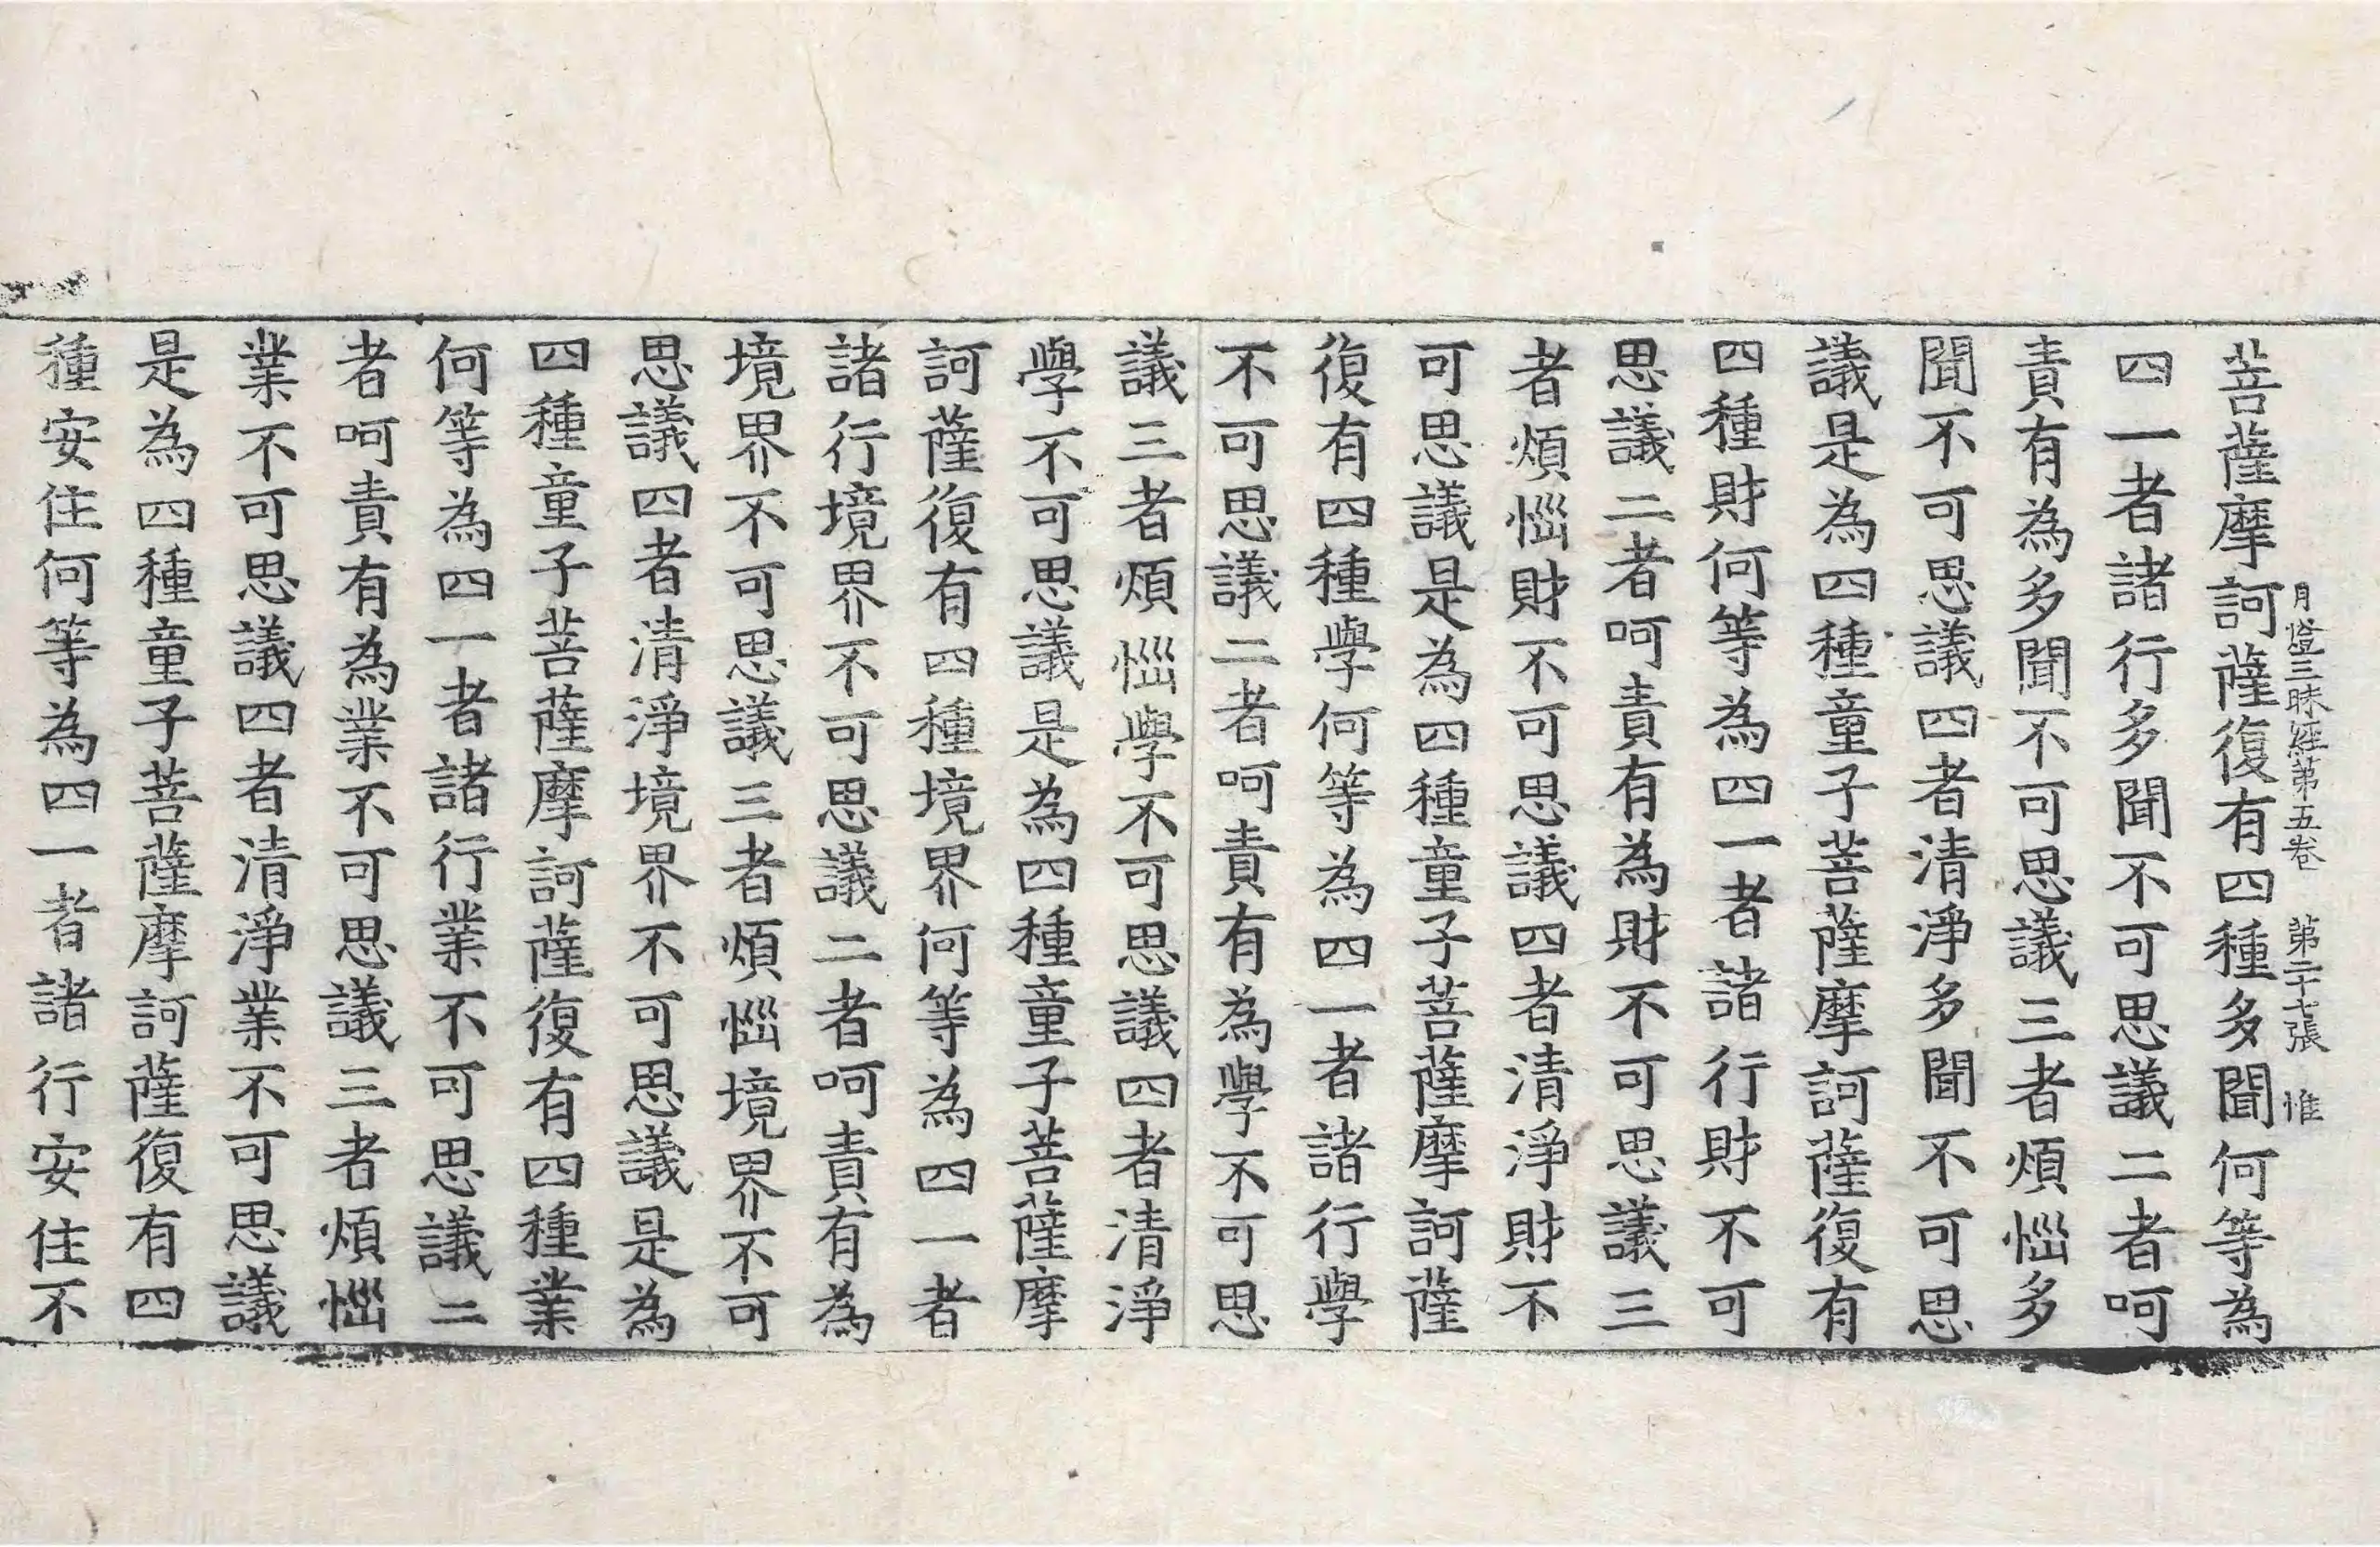 月燈三昧經第五卷 第二十七張 惟
菩薩摩訶薩復有四種多聞何等為
四一者諸行多聞不可思議二者呵
責有為多聞不可思議三者煩惱多
聞不可思議四者清淨多聞不可思
議是為四種童子菩薩摩訶薩復有
四種財何等為四一者諸行財不可
思議二者呵責有為財不可思議三
者煩惱財不可思議四者清淨財不
可思議是為四種童子菩薩摩訶薩
復有四種學何等為四一者諸行學
不可思議二者呵責有為學不可思
議三者煩惱學不可思議四者清淨
學不可思議是為四種童子菩薩摩
訶薩復有四種境界何等為四一者
諸行境界不可思議二者呵責有為
境界不可思議三者煩惱境界不可
思議四者清淨境界不可思議是為
四種童子菩薩摩訶薩復有四種業
何等為四一者諸行業不可思議二
者呵責有為業不可思議三者煩惱
業不可思議四者清淨業不可思議
是為四種童子菩薩摩訶薩復有四
種安住何等為四一者諸行安住不